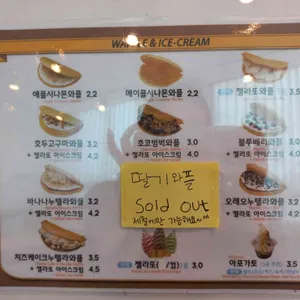 WAFFLE & ICE-CREAM
애플시나몬와플 2.2
메이플시나몬와플 2.2
젤라또와플 3.5
호두고구마와플 3.2
+ 젤라또 아이스크림 4.2
초코범벅와플 3.0
+ 젤라또 아이스크림 4.0
블루베리와플 3.0
+ 젤라또 아이스크림 4.0
바나나누텔라와플 3.4
+ 젤라또 아이스크림 4.4
딸기와플
Sold out
제철에만 가능해요~~
오레오누텔라와플 3.4
+ 젤라또 아이스크림 4.4
치즈케이크누텔라와플 3.5
+ 젤라또 아이스크림 4.5
젤라또( /컵) 3.0
아포가토